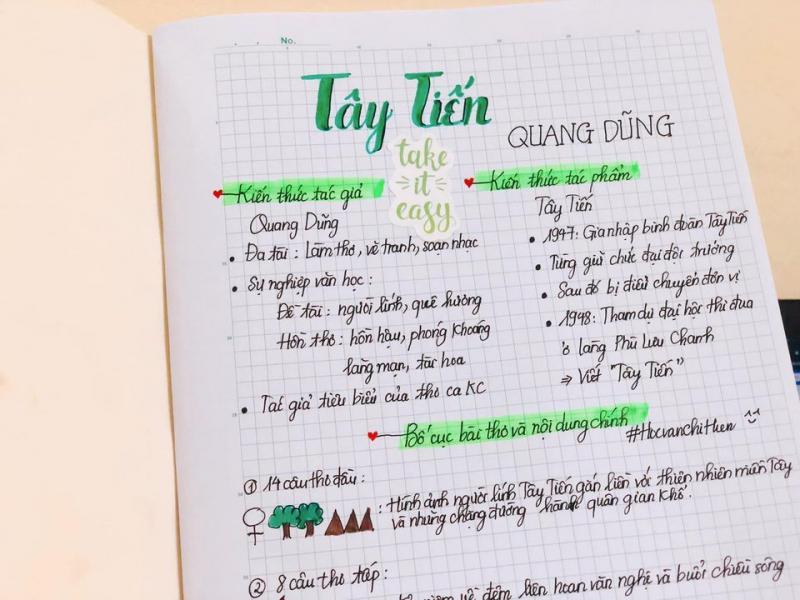 No.
Tây Tiến
QUANG DŨNG
take
it
easy
Kiến thức tác giả
Quang Dũng
• Đa tài : Làm thơ, vẽ tranh, soạn nhạc
• Sự nghiệp văn học :
Đề tài : người lính, quê hương
Hồn thơ : hồn hậu, phóng khoáng
lãng mạn, tài hoa
• Tác giả tiêu biểu của thơ ca KC
Kiến thức tác phẩm
Tây Tiến
• 1947: Gia nhập binh đoàn Tây Tiến
• Từng giữ chức đại đội trưởng
• Sau đó bị điều chuyển đơn vị
• 1948: Tham dự đại hội thi đua
ở làng Phù Lưu Chanh
⇒ Viết "Tây Tiến"
Bố cục bài thơ và nội dung chính
#Hocvanchihien ^^
① 14 câu thơ đầu :
: Hình ảnh người lính Tây Tiến gắn liền với thiên nhiên miền Tây
và những chặng đường hành quân gian khổ.
② 8 câu thơ tiếp :
niệm về đêm liên hoan văn nghệ và buổi chiều sông